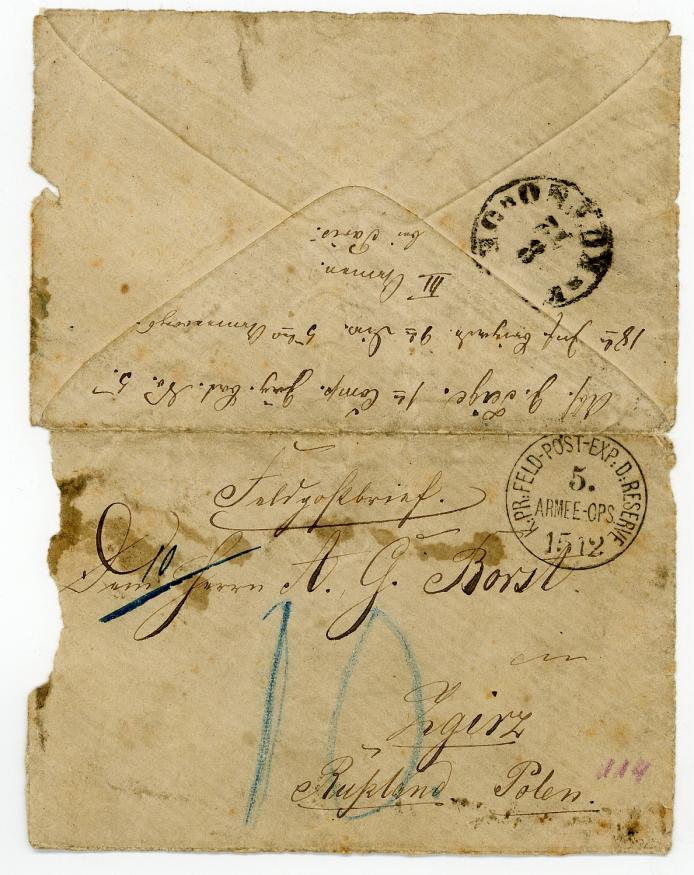 Abs. J. Jäge. 1te Comp. Jäg. Bat. No. 5.
18te Inf. Brigade. 9te Div. 5tes Armeecorps.
III Armee.
bei Paris.
8
Feldpostbrief.
K.PR.FELD-POST-EXP.D.RESERVE
5.
ARMEE-CPS.
15 12
10
Dem Herrn A. G. Borst.
in
10
Zgirz
Rußland Polen.
114